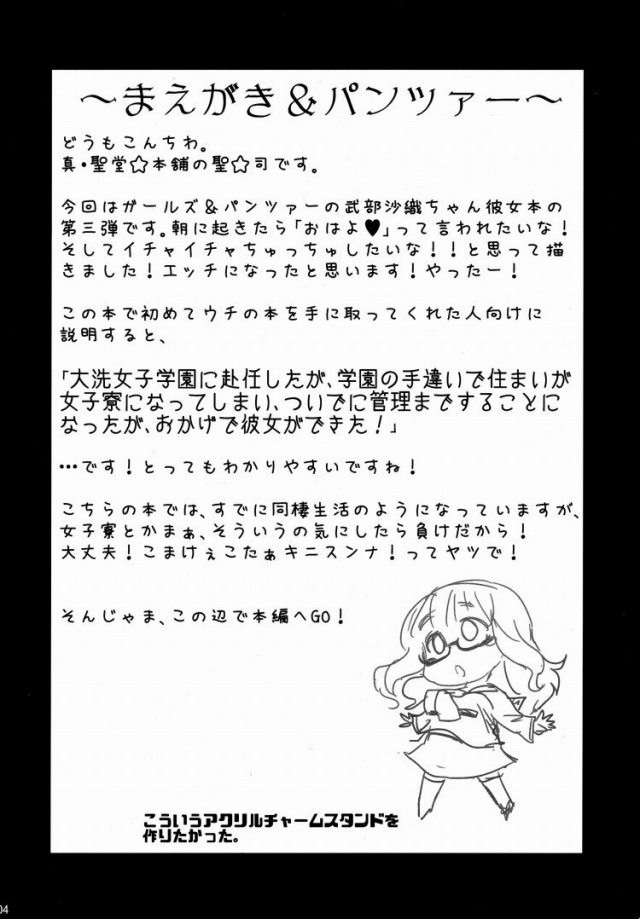 ～まえがき＆パンツァー～
どうもこんちわ。
真・聖堂☆本舗の聖☆司です。
今回はガールズ＆パンツァーの武部沙織ちゃん彼女本の
第三弾です。朝に起きたら「おはよ♥」って言われたいな！
そしてイチャイチャちゅっちゅしたいな！！と思って描
きました！エッチになったと思います！やったー！
この本で初めてウチの本を手に取ってくれた人向けに
説明すると、
「大洗女子学園に赴任したが、学園の手違いで住まいが
女子寮になってしまい、ついでに管理まですることに
なったが、おかげで彼女ができた！」
…です！とってもわかりやすいですね！
こちらの本では、すでに同棲生活のようになっていますが、
女子寮とかまぁ、そういうの気にしたら負けだから！
大丈夫！こまけぇこたぁキニスンナ！ってヤツで！
そんじゃま、この辺で本編へGO！
こういうアクリルチャームスタンドを
作りたかった。
04